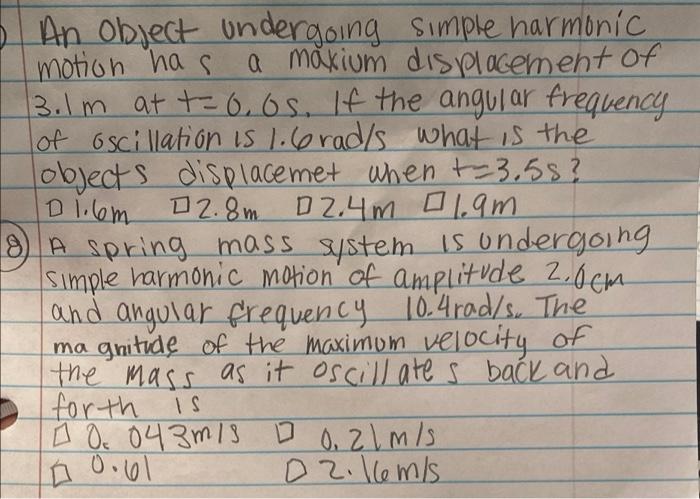 An Object undergoing simple harmonic
motion has a maxium displacement of
3.1m at t=0.0s. If the angular frequency
of oscillation is 1.6rad/s what is the
objects displacemet when t=3.5s?
□ 1.6m □ 2.8m □ 2.4m □ 1.9m
8 A spring mass system is undergoing
simple harmonic motion of amplitude 2.0cm
and angular frequency 10.4rad/s. The
magnitude of the maximum velocity of
the mass as it oscillates back and
forth is
□ 0.043m/s □ 0.21m/s
□ 0.61 □ 2.16m/s